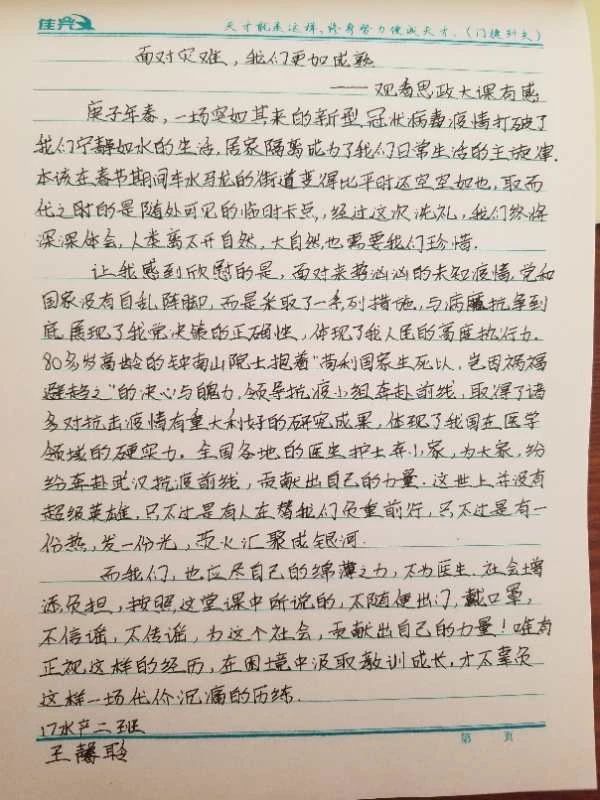 佳兴
天才就是这样，终身努力便成天才。（门捷列夫）
面对灾难，我们更加成熟
——观看思政大课有感
庚子年春，一场突如其来的新型冠状病毒疫情打破了
我们宁静如水的生活，居家隔离成为了我们日常生活的主旋律.
本该在春节期间车水马龙的街道变得比平时还空空如也，取而
代之时的是随处可见的临时卡点，经过这次洗礼，我们终将
深深体会，人类离不开自然，大自然也需要我们珍惜.
让我感到欣慰的是，面对来势汹汹的未知疫情，党和
国家没有自乱阵脚，而是采取了一系列措施，与病魔抗争到
底.展现了我党决策的正确性，体现了我人民的高度执行力。
80多岁高龄的钟南山院士抱着“苟利国家生死以，岂因祸福
避趋之”的决心与魄力，领导抗疫小组奔赴前线，取得了诸
多对抗击疫情有重大利好的研究成果，体现了我国在医学
领域的硬实力。全国各地的医生护士弃小家，为大家，纷
纷奔赴武汉抗疫前线，贡献出自己的力量。这世上并没有
超级英雄，只不过是有人在替我们负重前行，只不过是有一
份热，发一份光，萤火汇聚成银河.
而我们，也应尽自己的绵薄之力，不为医生、社会增
添负担，按照这堂课中所说的，不随便出门，戴口罩，
不信谣，不传谣，为这个社会，贡献出自己的力量！唯有
正视这样的经历，在困境中汲取教训成长，才不辜负
这样一场代价沉痛的历练.
17水产二班
王馨聆
第 页